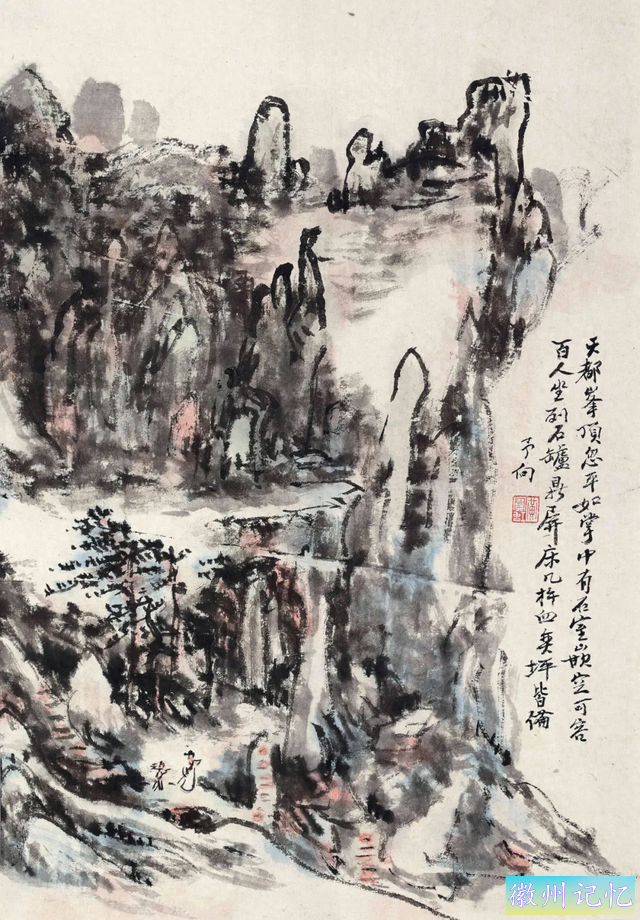 天都峯頂忽平如掌中有石室嵌空可容
百人坐列石罏鼎屏床几杵臼奕坪皆俻
予向
徽州记忆